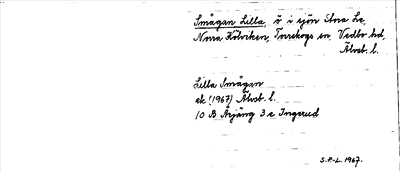 Smågan Lilla, ö i sjön Stora Le,
Norra Kölviken, Torrskogs sn, Vedbo hd,
Älvsb. l.
Lilla Smågan
ek (1967) Älvsb. l.
10 B Årjäng 3 e Ingerud
S.P-L. 1967.